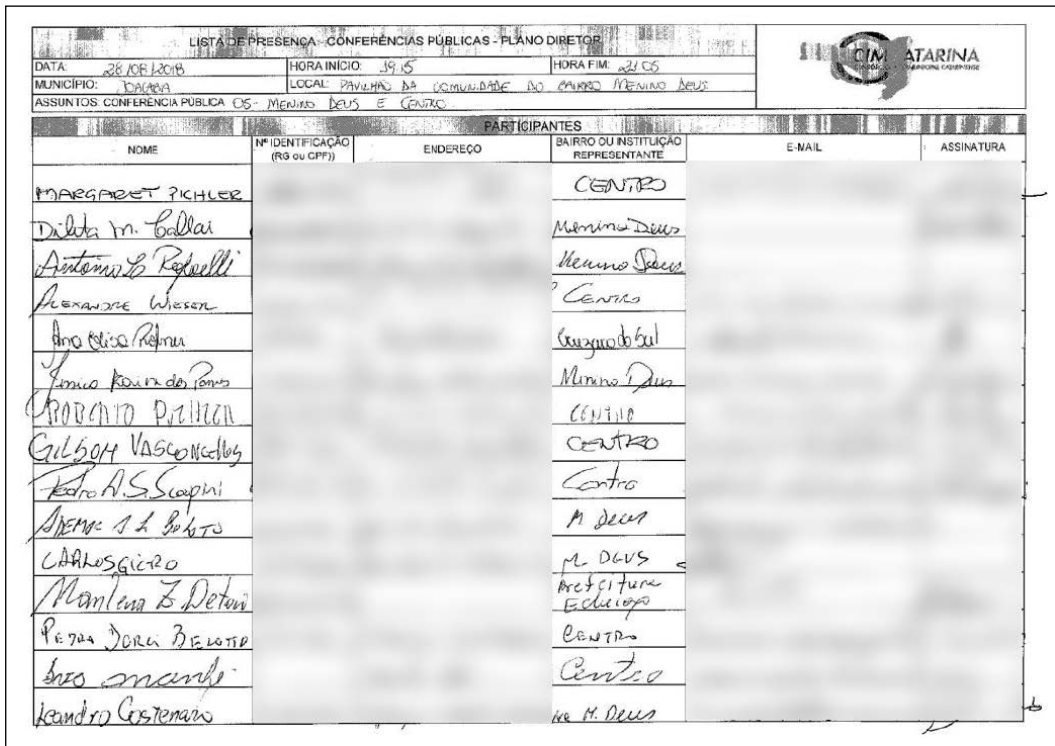 LISTA DE PRESENÇA - CONFERÊNCIAS PÚBLICAS - PLANO DIRETOR
DATA: 28/08/2018 HORA INÍCIO: 19:15 HORA FIM: 21:05
MUNICÍPIO: JOAÇABA LOCAL: PAVILHÃO DA COMUNIDADE DO BAIRRO MENINO DEUS
ASSUNTOS: CONFERÊNCIA PÚBLICA 05 - MENINO DEUS E CENTRO
CIM CATARINA
PARTICIPANTES
NOME Nº IDENTIFICAÇÃO (RG ou CPF)) ENDEREÇO BAIRRO OU INSTITUIÇÃO REPRESENTANTE E-MAIL ASSINATURA
MARGARET PICHLER CENTRO
M. Callai Menino Deus
Antonio Menino Deus
ALEXANDRE WIESER CENTRO
Ana Elisa Cruzeiro do Sul
dos Menino Deus
ROBERTO CENTRO
GILSON VASCONCELLOS CENTRO
Pedro A. S. Scapini Centro
ADEMIR M Deus
CARLOS M. DEUS
Marilena Z. Prefeitura
CENTRO
Enzo Centro
Leandro Costenaro M. Deus